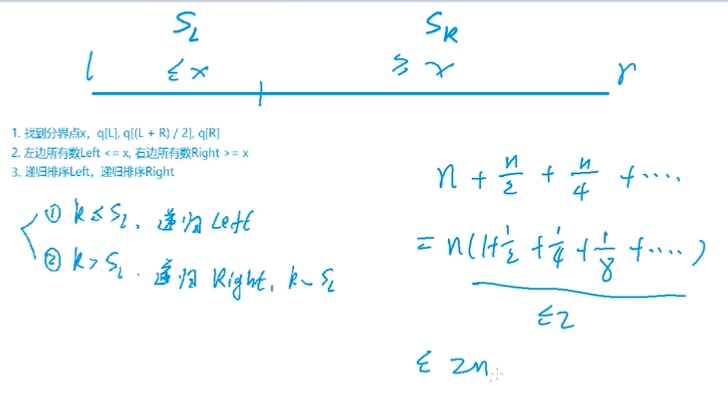 S_L S_R
l ≤ x ≥ x r
1. 找到分界点x, q[L], q[(L + R) / 2], q[R]
2. 左边所有数Left <= x, 右边所有数Right >= x
3. 递归排序Left, 递归排序Right
① k ≤ S_L, 递归 Left
② k > S_L. 递归 Right, k - S_L
n + n/2 + n/4 + ....
= n(1+1/2 + 1/4 + 1/8 + ....)
≤2
≤ 2n